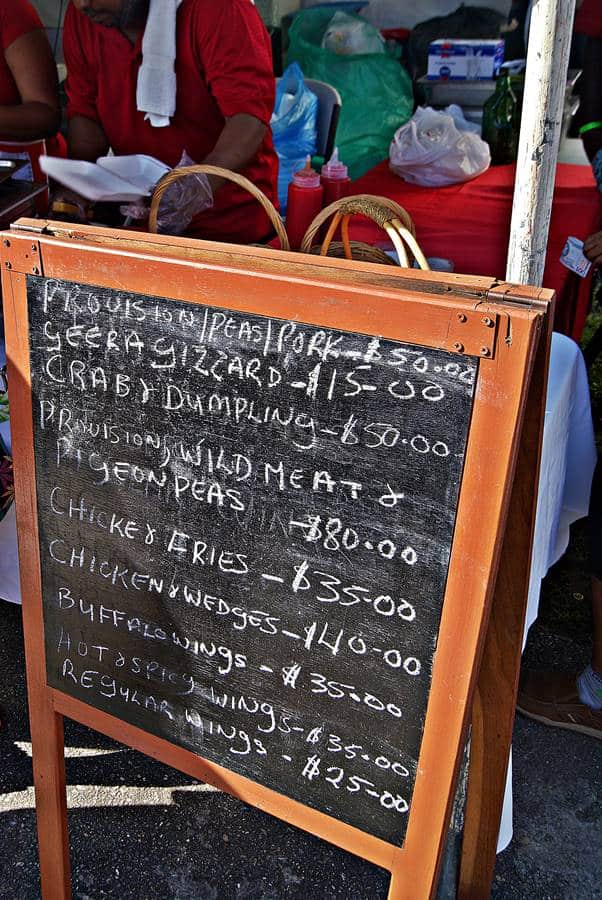 PROVISION/PEAS/PORK-$50.00
GEERA GIZZARD-$15-00
CRAB & DUMPLING-$50.00
PROVISION, WILD MEAT &
PIGEON PEAS
-$80.00
CHICKE & FRIES -$35.00
CHICKEN & WEDGES-$40.00
BUFFALO WINGS - $35.00
HOT & SPICY WINGS-$35.00
REGULAR WINGS - $25.00